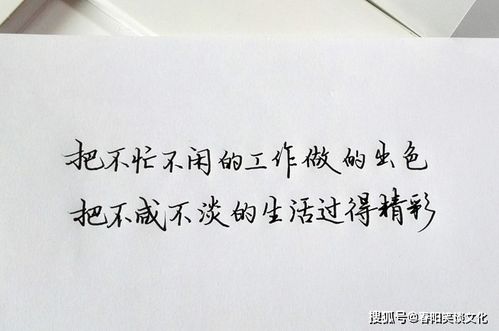 把不忙不闲的工作做的出色
把不咸不淡的生活过得精彩
搜狐号@春阳笑谈文化